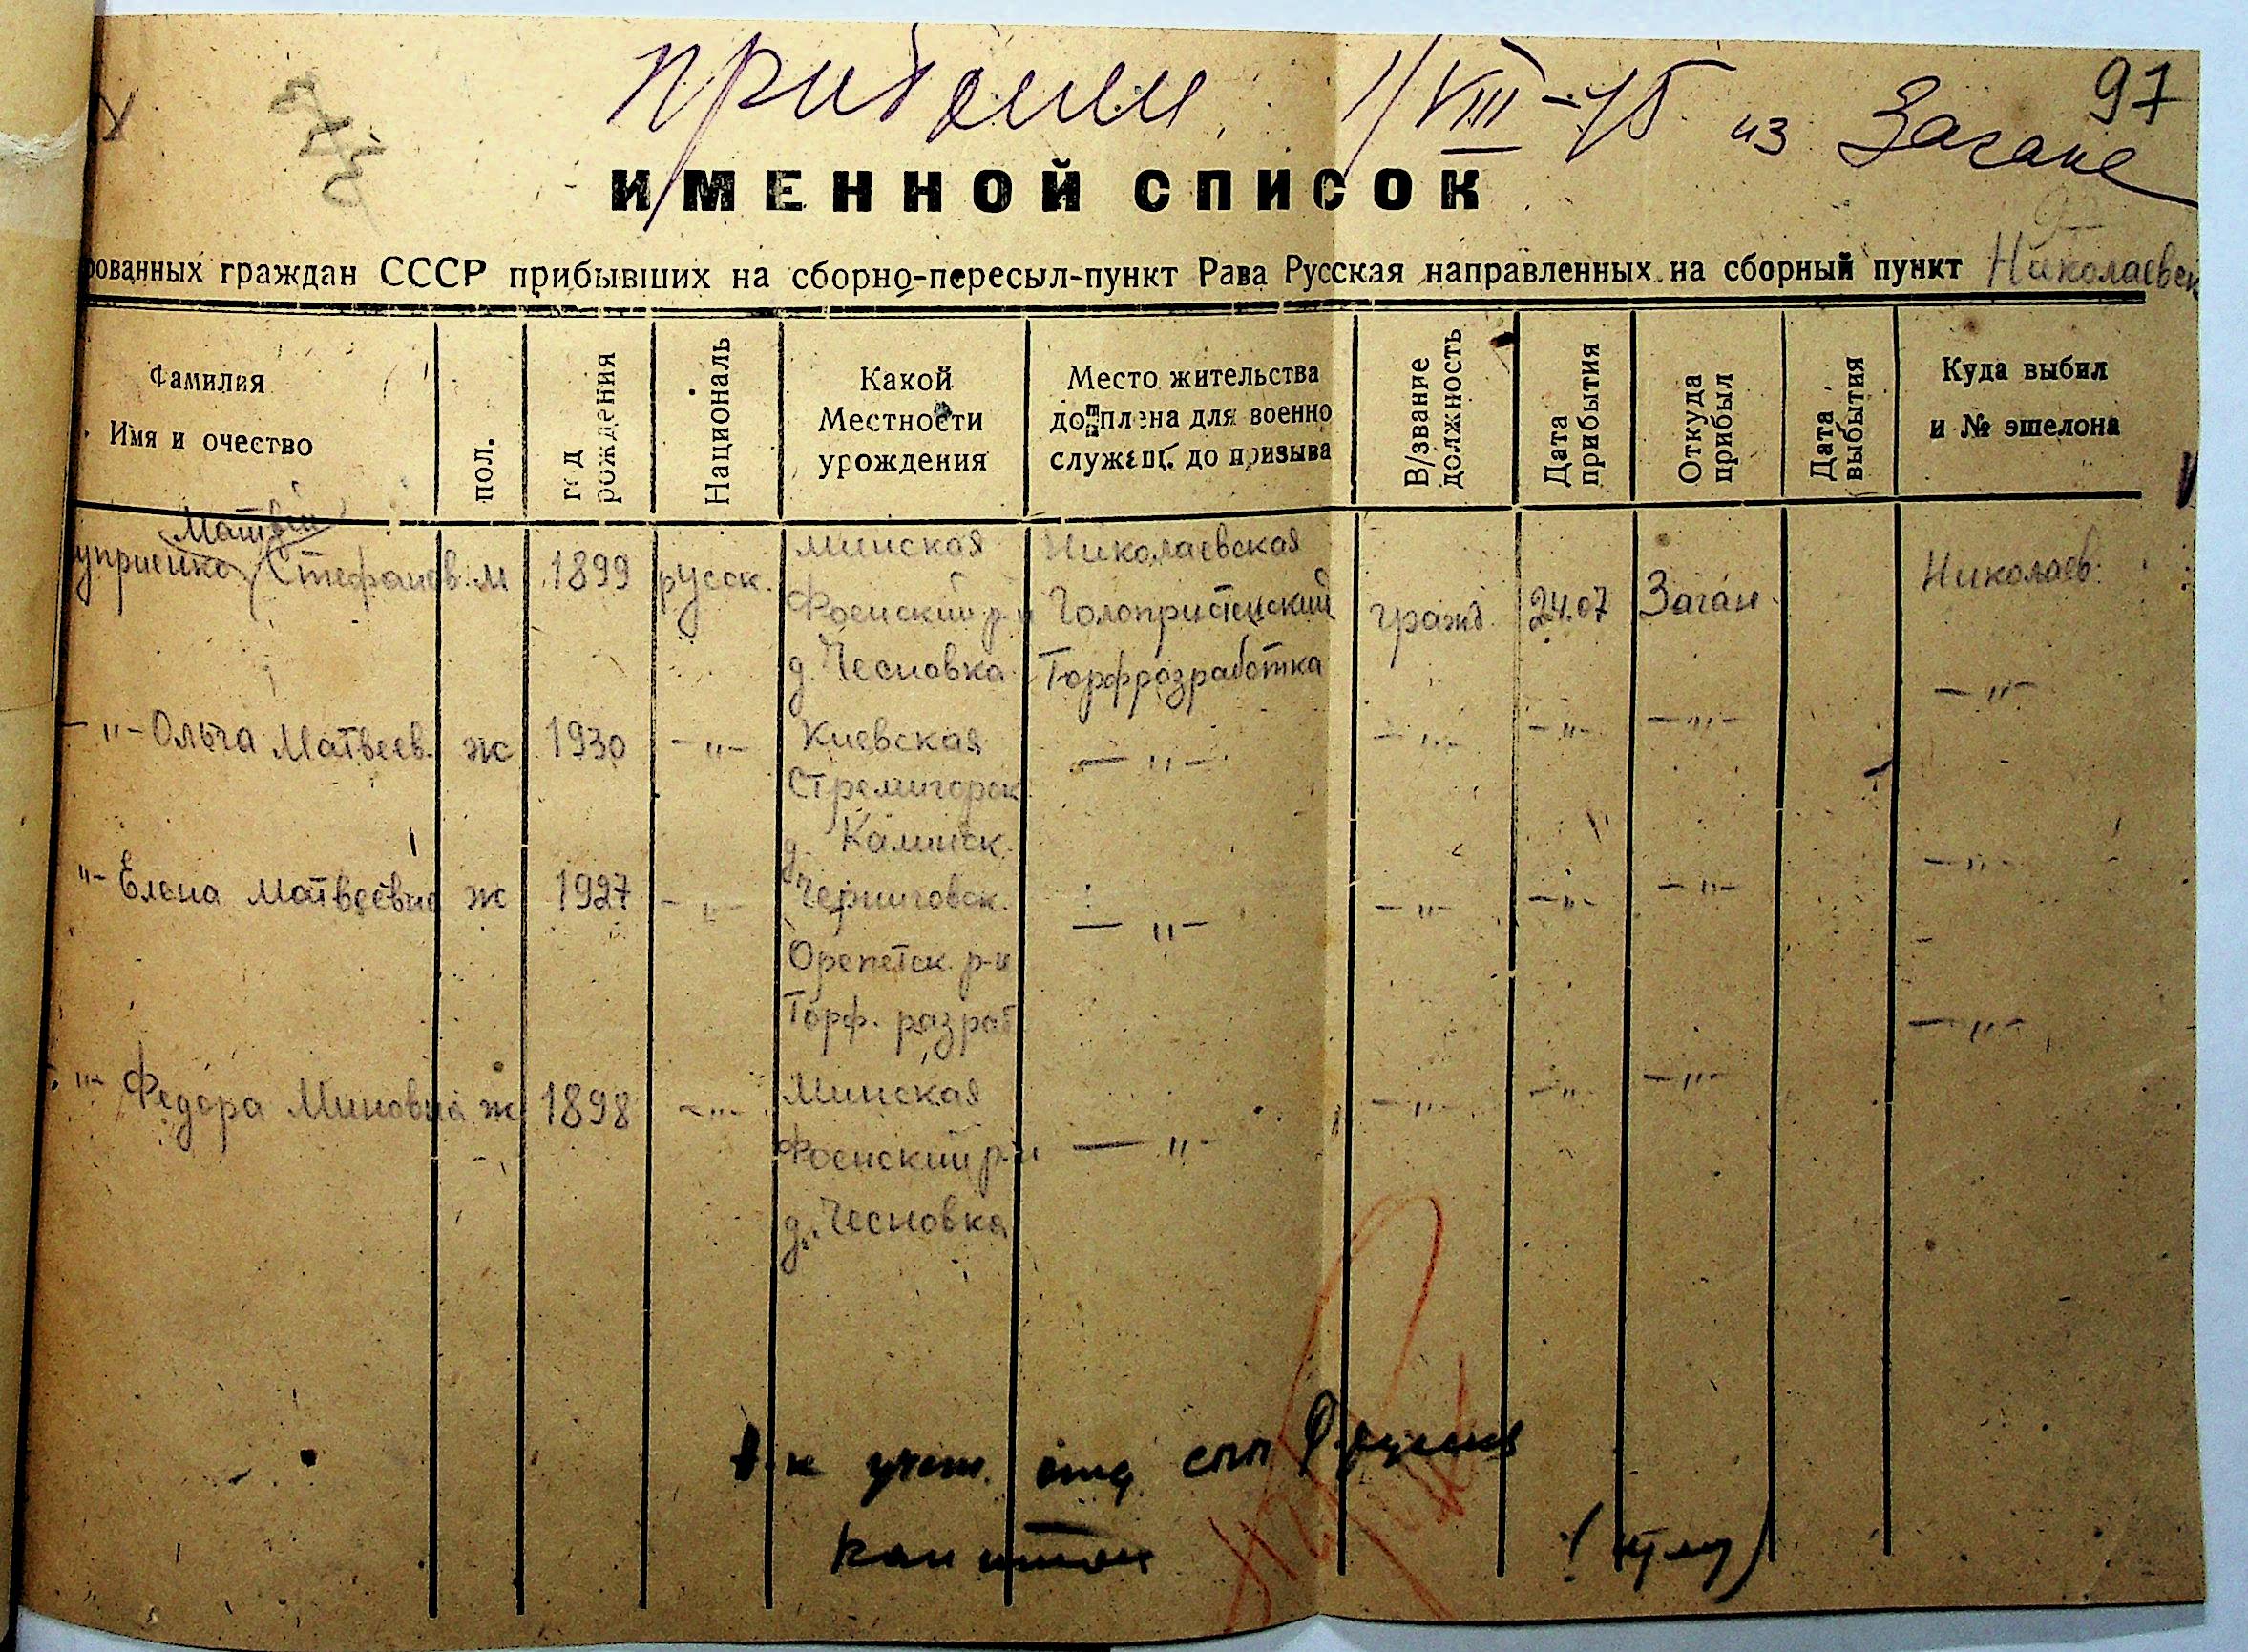 97
прибыли 1/VIII-45 из Загане
ИМЕННОЙ СПИСОК
рованных граждан СССР прибывших на сборно-пересыл-пункт Рава Русская направленных на сборный пункт Николаевск
Фамилия
Имя и очество
пол.
год рождения
Националь
Какой
Местности
урождения
Место жительства
до плена для военно
служащ. до призыва
В/звание должность
Дата прибытия
Откуда прибыл
Дата выбытия
Куда выбил
и № эшелона
Матвей
уприенко Стефанов. м 1899 русск. Минская Николаевская Николаев.
Фоенский р-н Голопристенский гражд. 24.07 Заган.
д. Чесновка Торфрозработка
—"— Ольга Матвеев. ж 1930 —"— Киевская —"— —"— —"— —"— —"—
Стремигорск
д. Каминск.
"— Елена Матвеевна ж 1927 —"— Черниговск. —"— —"— —"— —"— —"—
Орепетск. р-н
Торф. разраб
"— Федора Миновна ж 1898 —"— Минская —"— —"— —"— —"— —"—
Фоенский р-н
д. Чесновка
к учет. отд. спп
капитан